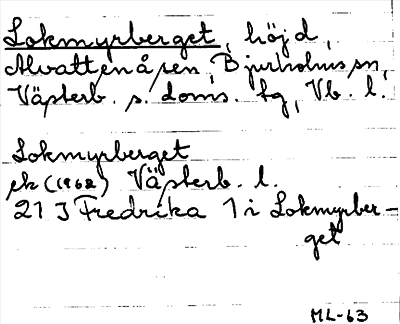 Lokmyrberget, höjd,
Alvattenåsen, Bjurholms sn,
Västerb. s. doms. tg, Vb. l.
Lokmyrberget
ek (1962) Västerb. l.
21 J Fredrika 1 i Lokmyrber-
get
ML-63